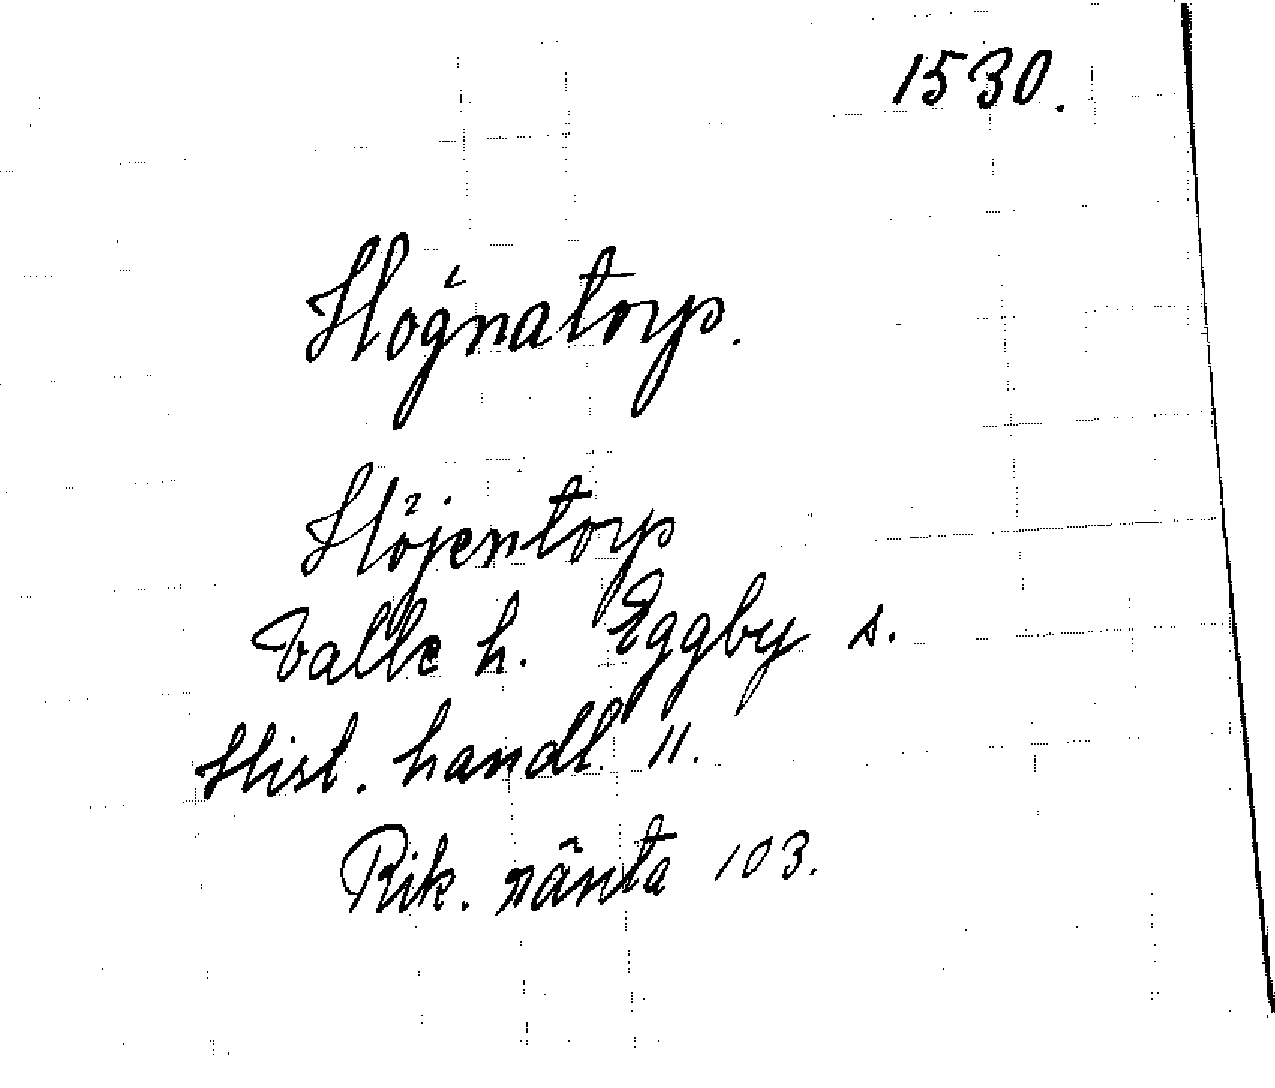 1530.
Högnatorp.
Höjentorp
Valle h. Eggby s.
Hist. handl. 11.
Rik. ränta 103.